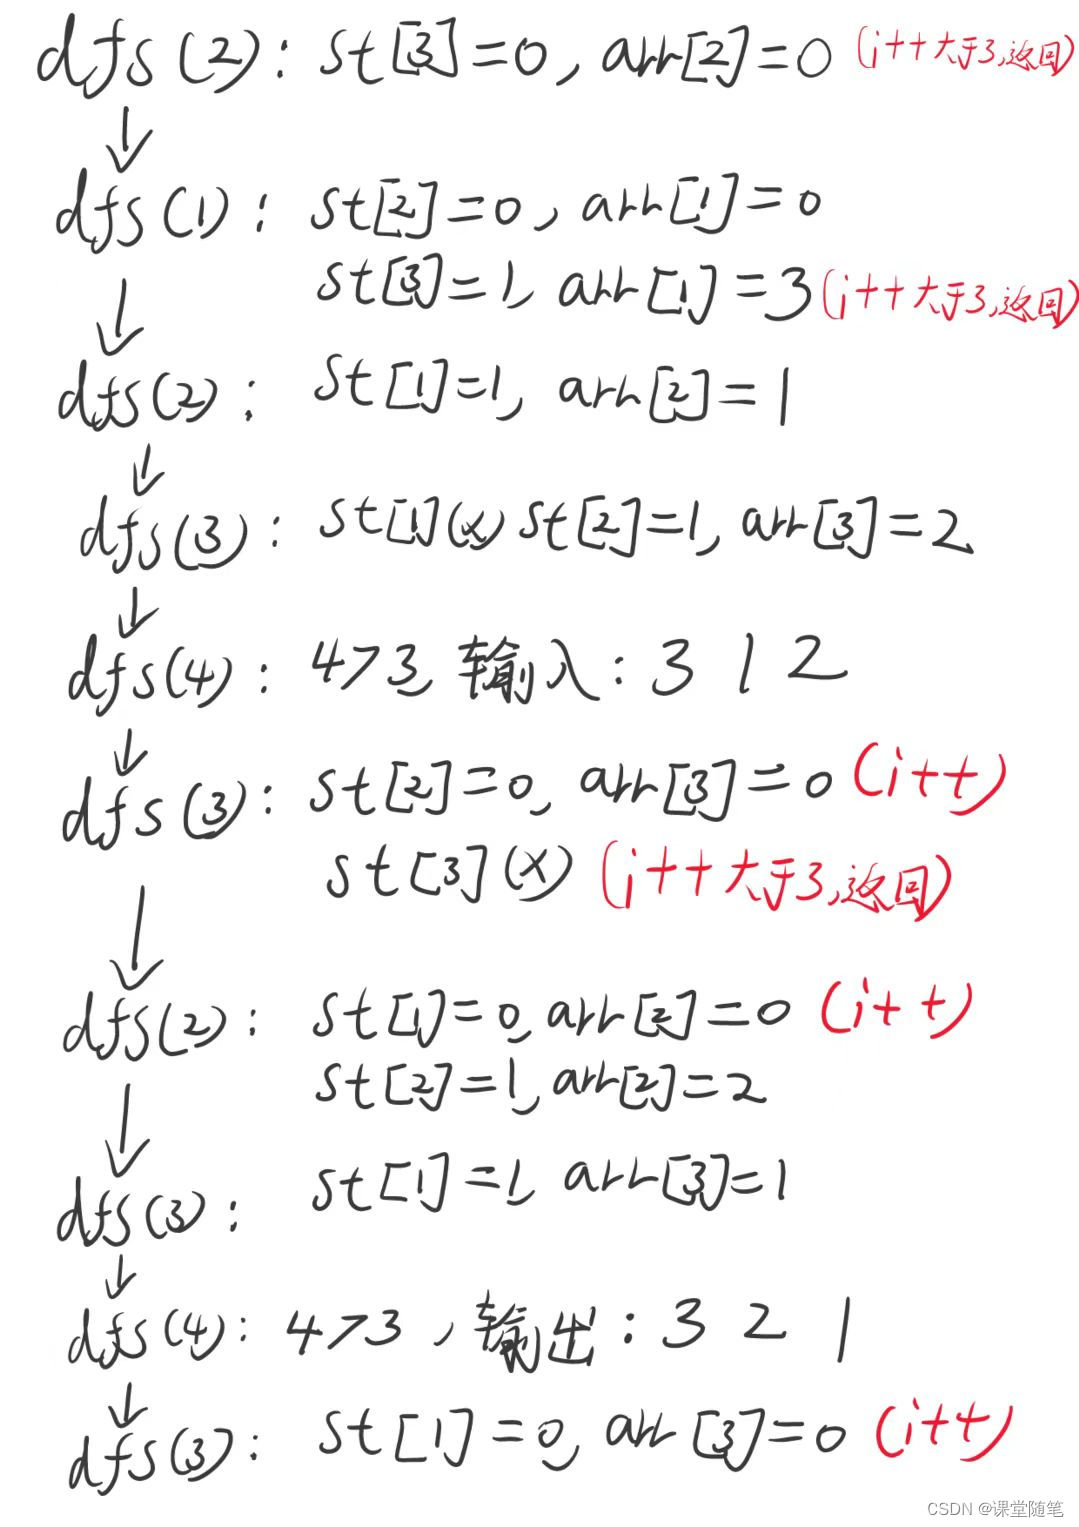 dfs(2): st[3]=0, arr[2]=0 (i++大于3,返回)
dfs(1): st[2]=0, arr[1]=0
st[3]=1, arr[1]=3 (i++大于3,返回)
dfs(2): st[1]=1, arr[2]=1
dfs(3): st[1](x) st[2]=1, arr[3]=2
dfs(4): 4>3, 输入: 3 1 2
dfs(3): st[2]=0, arr[3]=0 (i++)
st[3](x) (i++大于3,返回)
dfs(2): st[1]=0, arr[2]=0 (i++)
st[2]=1, arr[2]=2
dfs(3): st[1]=1, arr[3]=1
dfs(4): 4>3, 输出: 3 2 1
dfs(3): st[1]=0, arr[3]=0 (i++)
CSDN @课堂随笔